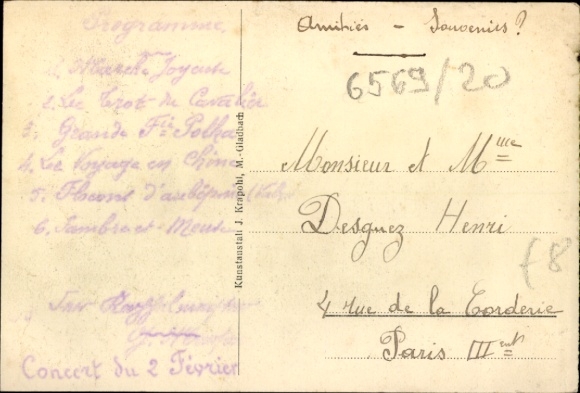 Programme
Marche Joyeuse
2. Le Trot de Cavalier
3. Grande Fie Polka
4. Le Voyage en Chine
5. Flocons d'aubépine
6. Sambre et Meuse
Concert du 2 Février
Kunstanstalt J. Krapohl, M.-Gladbach
Amitiés - Souvenirs?
6569/20
Monsieur et Mme
Desguez Henri
4 rue de la Corderie
Paris III
f8